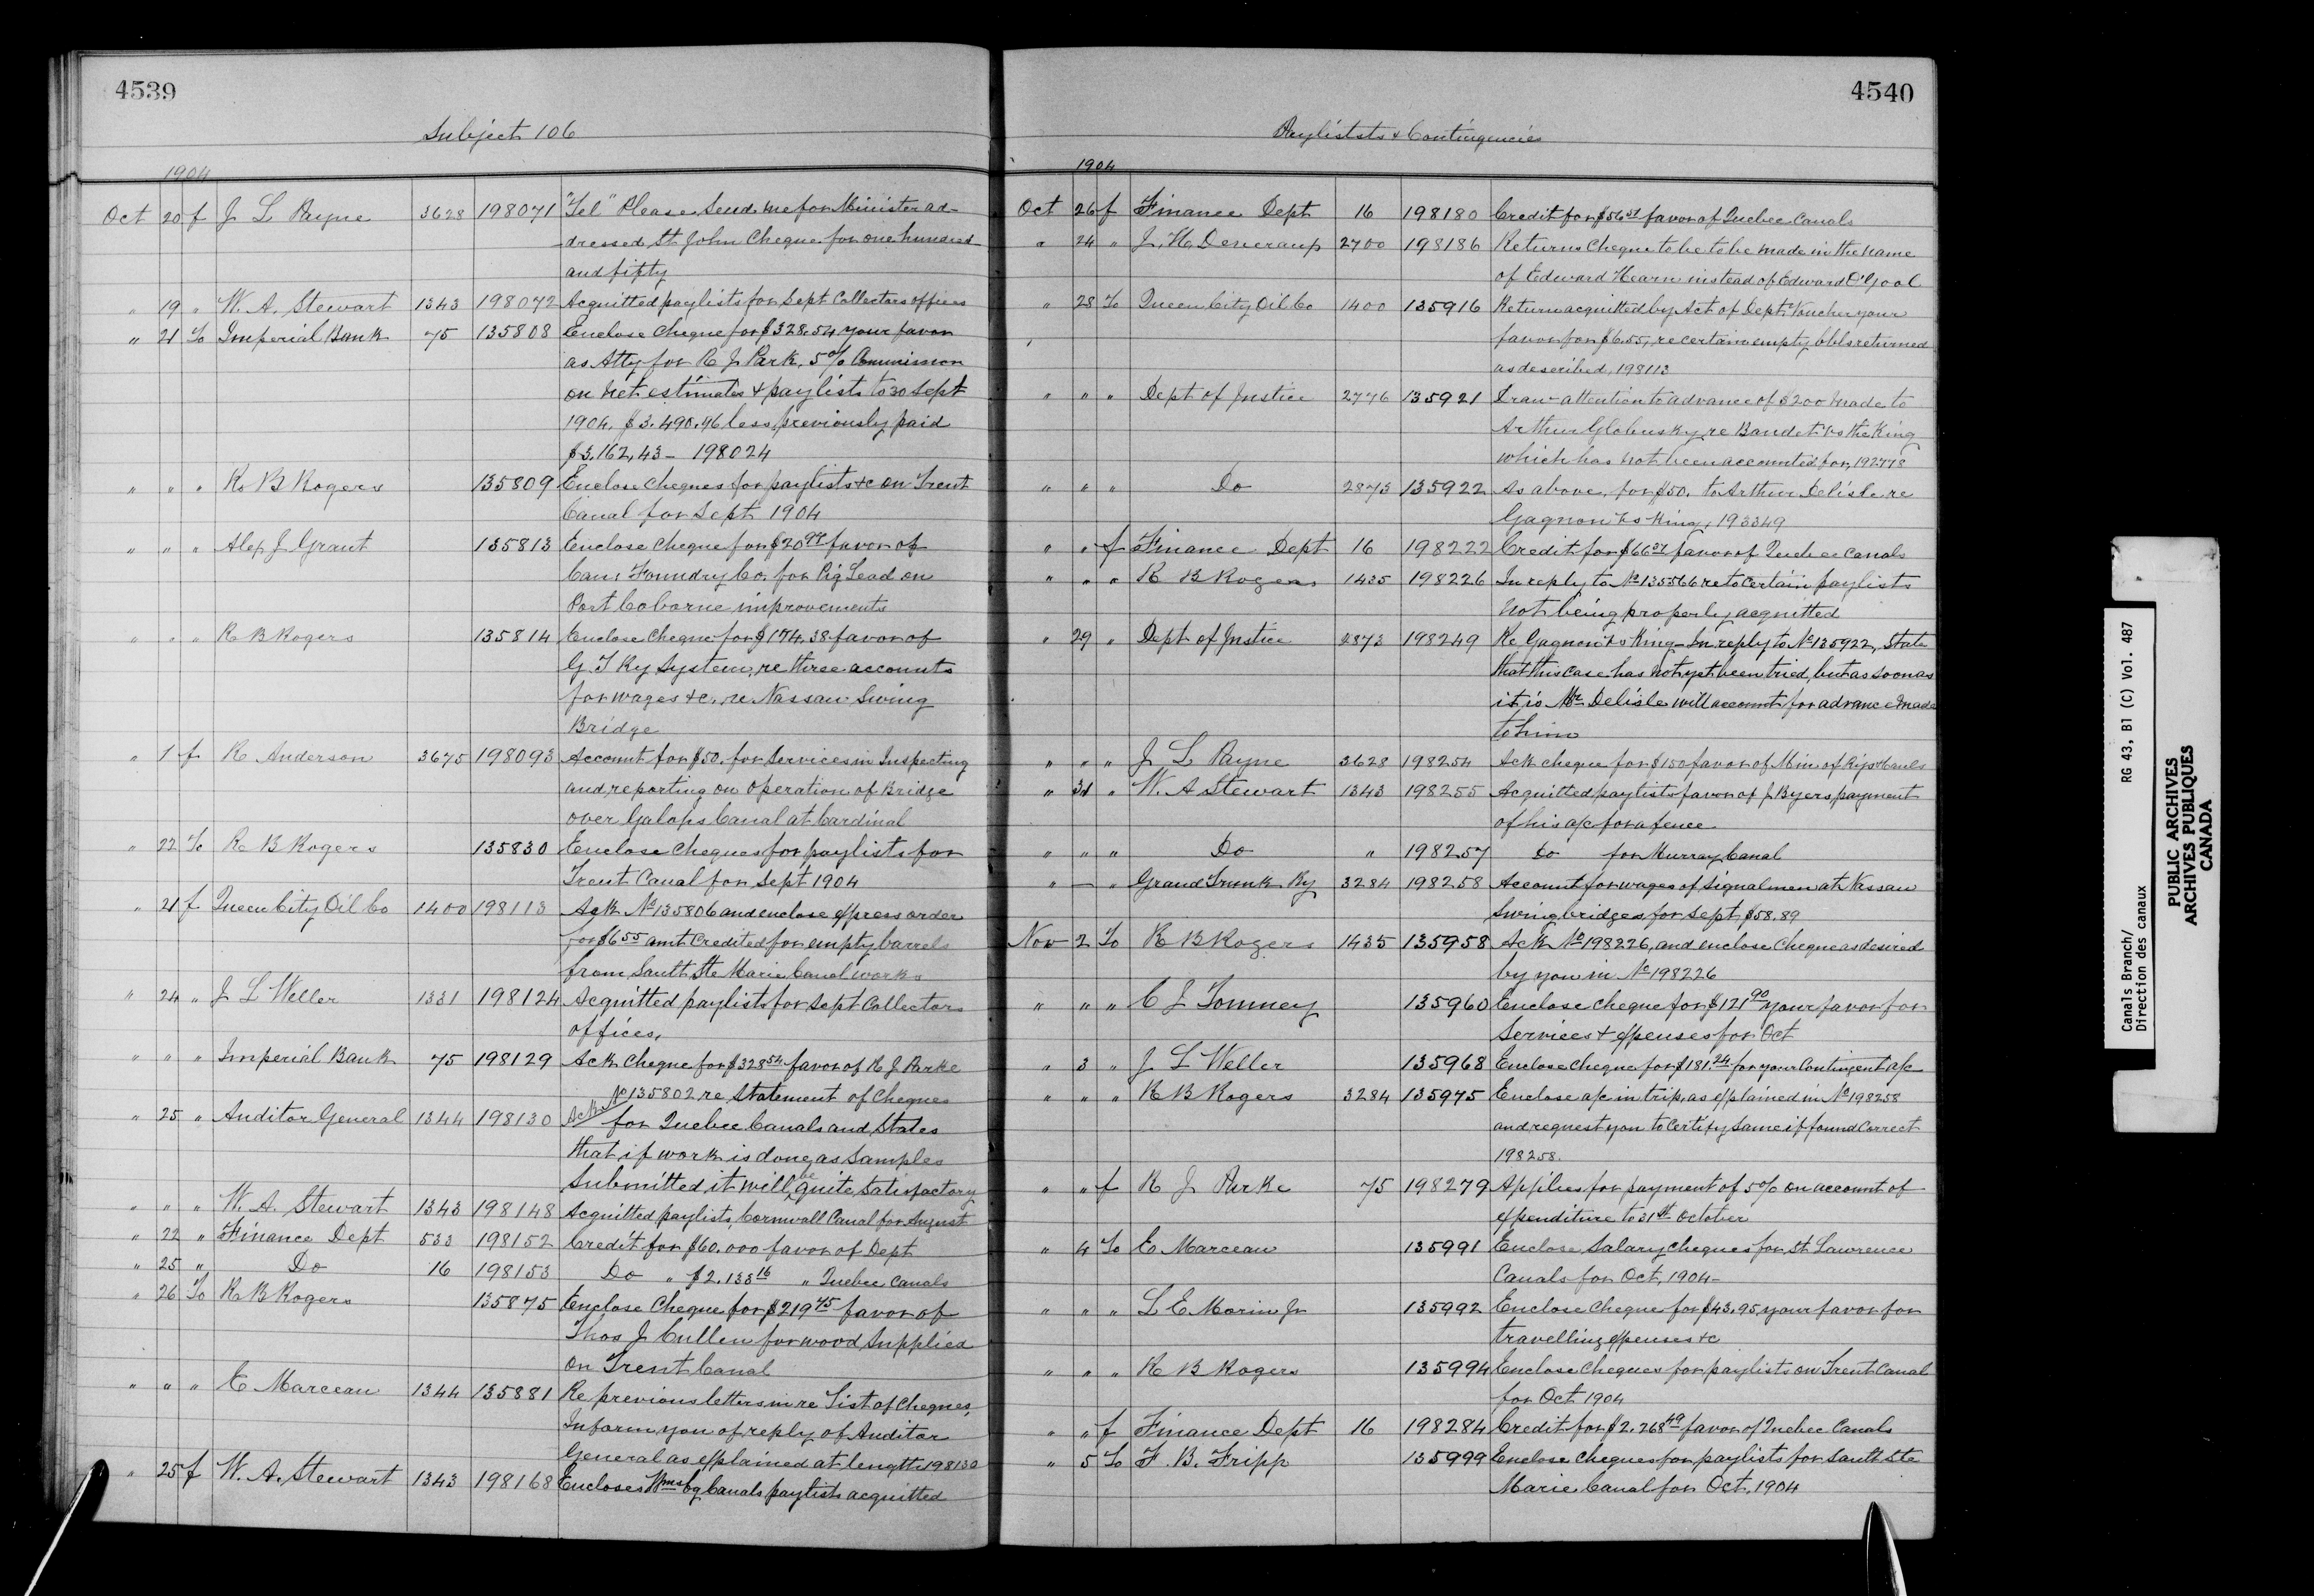 4539
Subject 106
1904
Oct 20 f J L Payne 3628 198071 "Tel" Please send me for Minister ad-
dressed St John Cheque for one hundred
and fifty
" 19 " W. A. Stewart 1343 198072 Acquitted paylists for Sept Collectors offices
" 21 To Imperial Bank 75 135808 Enclose Cheque for $328.54 your favor
as Atty for R J Park, 5% Commission
on net estimates & paylists to 30 Sept
1904. $3.490.96 less previously paid
$3,162,43 - 198024
" " " R B Rogers 135809 Enclose Cheques for paylists &c on Trent
Canal for Sept 1904
" " " Alex J Grant 135813 Enclose Cheque for $20 favor of
Can: Foundry Co. for Pig Lead on
Port Coborne improvements
" " " R B Rogers 135814 Enclose Cheque for $174.38 favor of
G. T Ry System, re three accounts
for wages &c. re Nassau Swing
Bridge
" 1 f R Anderson 3675 198093 Account for $50. for Services in Inspecting
and reporting on Operation of Bridge
over Galops Canal at Cardinal
" 22 To R B Rogers 135830 Enclose Cheques for paylists for
Trent Canal for Sept 1904
" 21 f Queen City Oil Co 1400 198113 Ack No 135806 and enclose express order
for $6 55 amt Credited for empty barrels
from Sault Ste Marie Canal works
" 24 " J L Weller 1331 198124 Acquitted paylists for Sept Collectors
offices,
" " " Imperial Bank 75 198129 Ack Cheque for $328 54 favor of R J Parke
" 25 " Auditor General 1344 198130 Acks No 135802 re Statement of Cheques
for Quebec Canals and States
that if work is done as Samples
Submitted it will be quite satisfactory
" " " W. A. Stewart 1343 198148 Acquitted paylists, Cornwall Canal for August
" 22 " Finance Dept 533 198152 Credit for $60.000 favor of Dept
" 25 " Do 16 198153 Do " $2.133 16 " Quebec Canals
" 26 To R B Rogers 135875 Enclose Cheque for $219 45 favor of
Thos J Cullen for wood supplied
on Trent Canal
" " " E Marceau 1344 135881 Re previous letters in re List of Cheques,
Inform you of reply of Auditor
General as explained at length 198130
" 25 f W. A. Stewart 1343 198168 Encloses Wmsbg Canals paylists acquitted
4540
Paylistst & Contingencies
1904
Oct 26 f Finance Dept 16 198180 Credit for $56 favor of Quebec Canals
" 24 " J. H. 2700 198186 Returns Cheque to be to be made in the name
of Edward Hearn instead of Edward
" 28 To Queen City Oil Co 1400 135916 Return acquitted by Act of Dept Voucher your
favor for $6.55, re certain empty bbls returned
as described, 198113
" " " Dept of Justice 2776 135921 Draw attention to advance of $200 made to
Arthur Globensky re Baudet vs the King
which has not been accounted for, 192778
" " " Do 2873 135922 As above, for $50. to Arthur Delisle re
Gagnon vs King, 193349
" " f Finance Dept 16 198222 Credit for $66 favor of Quebec Canals
" " " R B Rogers 1435 198226 In reply to No 135566 re to certain paylists
not being properly acquitted
" 29 " Dept of Justice 2873 198249 Re Gagnon vs King - In reply to No 135922, State
that this case has not yet been tried, but as soon as
it is Mr Delisle will account for advance made
to him
" " " J L Payne 3628 198254 Ack cheque for $150 favor of Min of Rys & Canls
" 31 " W. A Stewart 1343 198255 Acquitted paylists favor of J Byers payment
of his a/c for a fence
" " " Do " 198257 Do for Murray Canal
" — " Grand Trunk Ry 3284 198258 Account for wages of Signalmen at Nassau
Swing bridges for Sept $58.89
Nov 2 To R B Rogers 1435 135958 Ack No 198226, and enclose Cheque as desired
by you in No 198226
" " " C J Tomney 135960 Enclose Cheque for $121 90 your favor for
Services & expenses for Oct
" 3 " J L Weller 135968 Enclose Cheque for $181.24 for your Contingent a/c
" " " R B Rogers 3284 135975 Enclose a/c in trip, as explained in No 198258
and request you to Certify same if found Correct
198258.
" " f R J Parke 75 198279 Applies for payment of 5% on account of
expenditure to 31st October
" 4 To E Marceau 135991 Enclose Salary Cheques for St Lawrence
Canals for Oct, 1904-
" " " L E Morin Jr 135992 Enclose Cheque for $43.95, your favor for
travelling expenses &c
" " " R B Rogers 135994 Enclose Cheques for paylists on Trent Canal
for Oct 1904
" " f Finance Dept 16 198284 Credit for $2.268 49 favor of Quebec Canals
" 5 To F. B. Fripp 135999 Enclose Cheques for paylists for Sault Ste
Marie Canal for Oct. 1904
Canals Branch/ RG 43, B1 (C) Vol. 487
Direction des canaux
PUBLIC ARCHIVES
ARCHIVES PUBLIQUES
CANADA